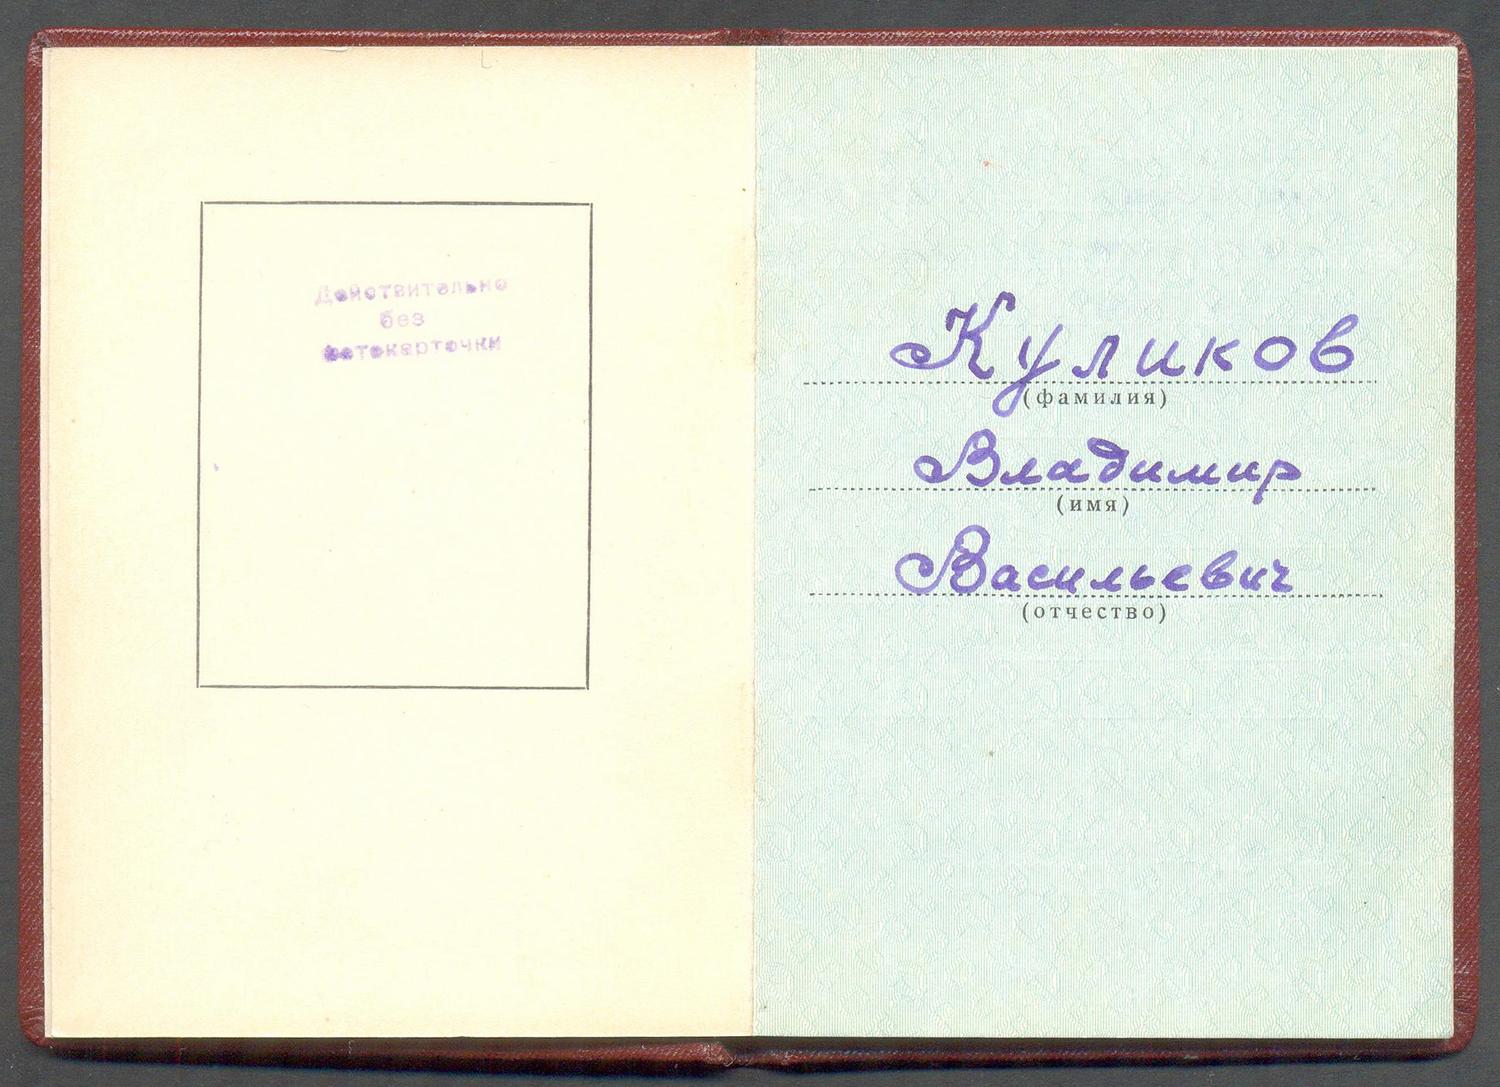 Действительно
без
фотокарточки
Куликов
(фамилия)
Владимир
(имя)
Васильевич
(отчество)